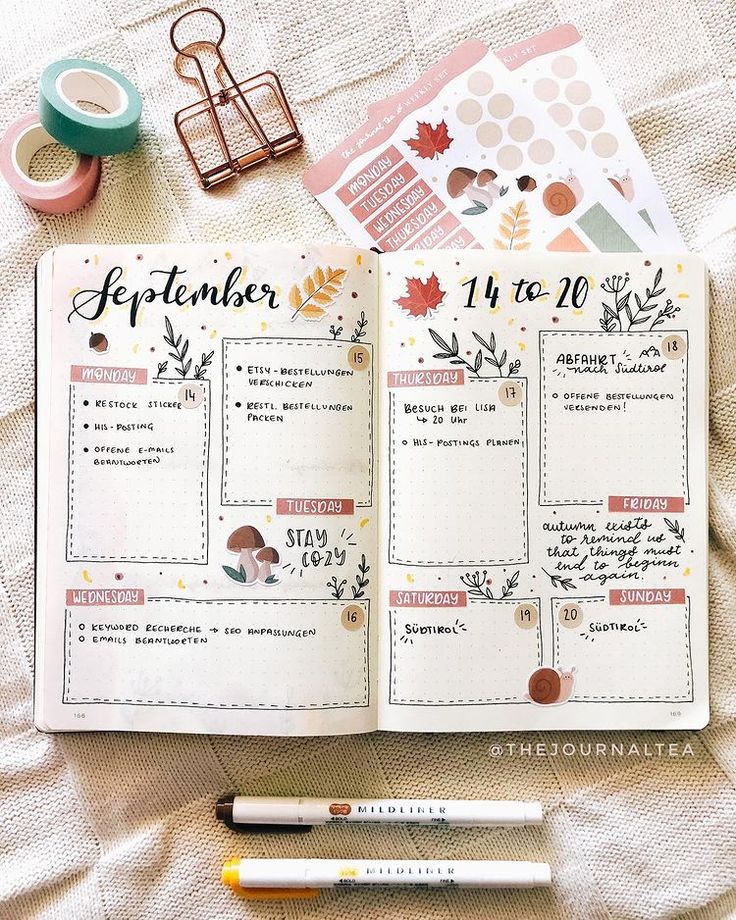 the journal tea WEEKLY SET
WEEKLY SET
MONDAY
TUESDAY
WEDNESDAY
THURSDAY
FRIDAY
September
14 to 20
MONDAY
14
• RESTOCK STICKER
• HIS-POSTING
• OFFENE E-MAILS
BEANTWORTEN
15
• ETSY-BESTELLUNGEN
VERSCHICKEN
• RESTL. BESTELLUNGEN
PACKEN
TUESDAY
STAY
COZY
WEDNESDAY
16
○ KEYWORD RECHERCHE → SEO ANPASSUNGEN
○ EMAILS BEANTWORTEN
166
THURSDAY
17
BESUCH BEI LISA
↳ 20 Uhr
○ HIS-POSTINGS PLANEN
18
ABFAHRT
nach Südtirol
○ OFFENE BESTELLUNGEN
VERSENDEN!
FRIDAY
autumn exists
to remind us
that things must
end to beginn
again.
SATURDAY
19
SÜDTIROL
SUNDAY
20
SÜDTIROL
169
@THEJOURNALTEA
MILDLINER
BOLD
FINE
MILDLINER
BOLD
FINE